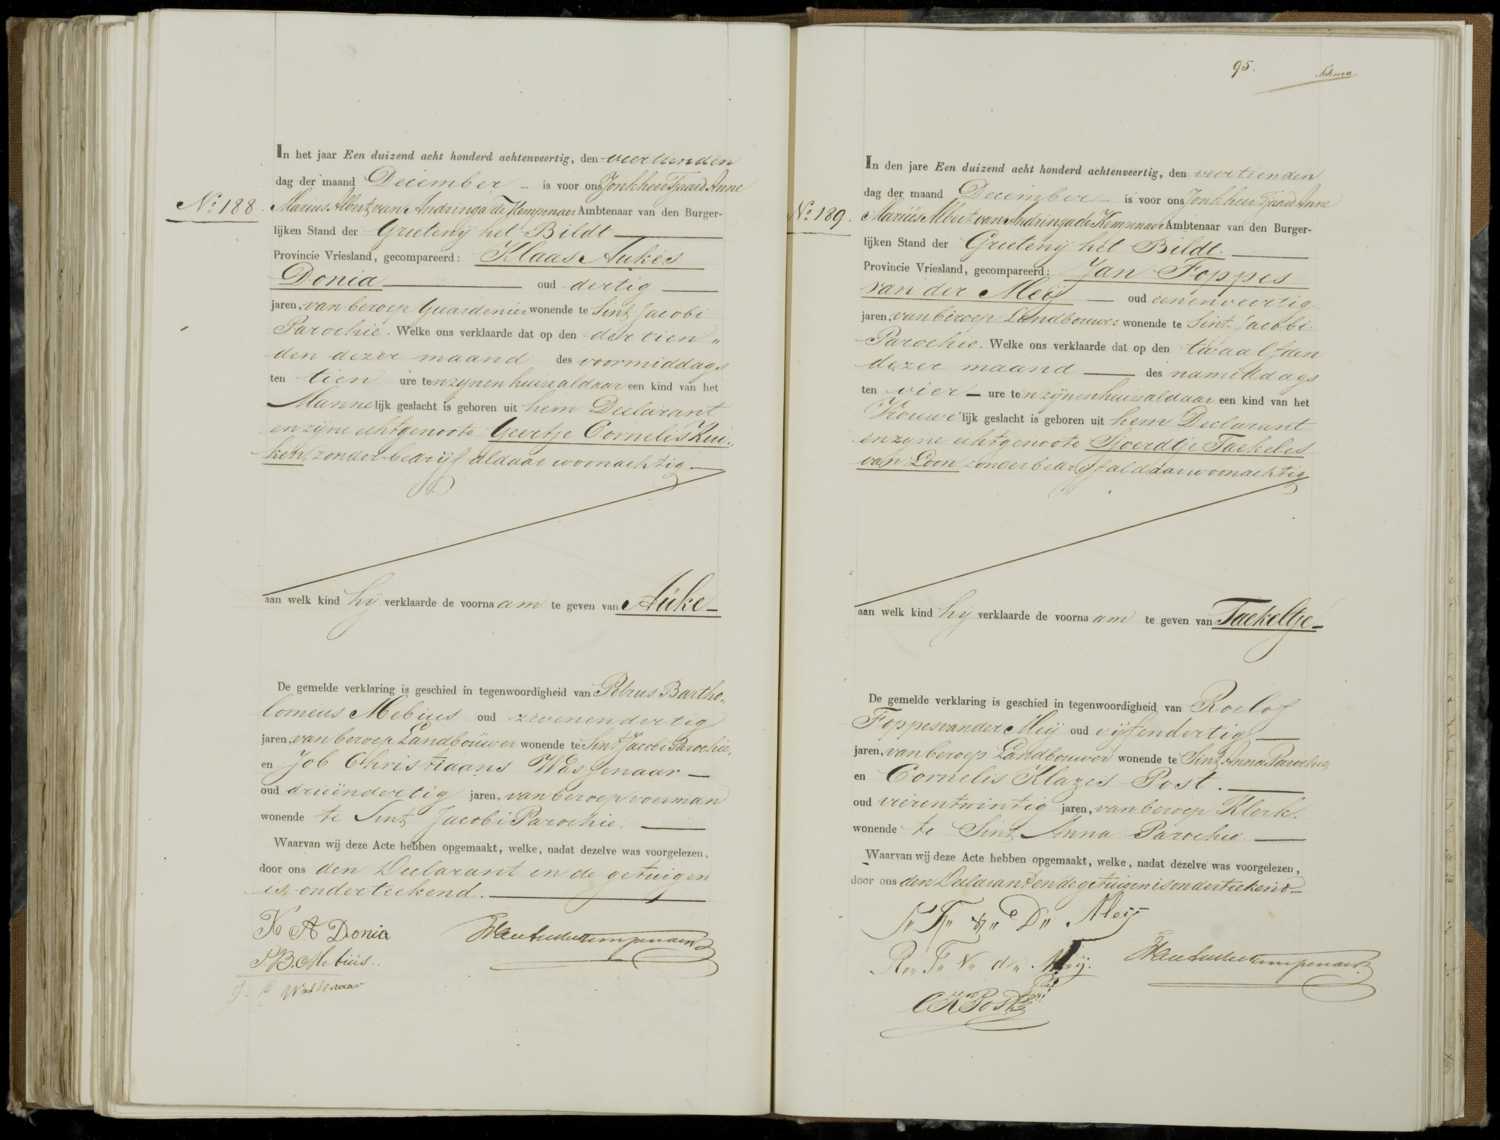 In het jaar Een duizend acht honderd achtenveertig, den veertienden
dag der maand December is voor ons Jonkheer Tjaard Anne
No. 188. Marius Albert van Andringa de Kempenaer Ambtenaar van den Burger-
lijken Stand der Grieteny het Bildt
Provincie Vriesland, gecompareerd: Klaas Aukes
Donia oud dertig
jaren, van beroep Guardenier wonende te Sint Jacobi
Parochie. Welke ons verklaarde dat op den dertien„
den dezer maand des voormiddags
ten tien ure ten zynen huize aldaar een kind van het
Mannelijk geslacht is geboren uit hem Declarant
en zyne echtgenoote Geertje Cornelis Kui-
ken, zonder bedrijf aldaar woonachtig
aan welk kind hy verklaarde de voornaam te geven van Auke
De gemelde verklaring is geschied in tegenwoordigheid van Petrus Bartho-
lomeus Mebius oud zevenendertig
jaren, van beroep Landbouwer wonende te Sint Jacobi Parochie,
en Job Christiaans Wassenaar
oud drieëndertig jaren, van beroep voerman
wonende te Sint Jacobi Parochie.
Waarvan wij deze Acte hebben opgemaakt, welke, nadat dezelve was voorgelezen,
door ons den Declarant en de getuigen
is onderteekend.
K A Donia
P.B. Mebius.
J. C Wassenaar
95.
In den jare Een duizend acht honderd achtenveertig, den veertienden
dag der maand December is voor ons Jonkheer Tjaard Anne
No. 189. Mariüs Albert van Andringa de Kempenaer Ambtenaar van den Burger-
lijken Stand der Grieteny het Bildt.
Provincie Vriesland, gecompareerd: Jan Foppes
van der Meij oud eenenveertig
jaren, van beroep Landbouwer wonende te Sint Jacobi
Parochie. Welke ons verklaarde dat op den twaalfden
dezer maand des namiddags
ten vier ure ten zynen huize aldaar een kind van het
Vrouwelijk geslacht is geboren uit hem Declarant
en zyne echtgenoote Sjoerdtje Taekeles
van Loon zonder bedrijf aldaar woonachtig
aan welk kind hy verklaarde de voornaam te geven van Taekeltje
De gemelde verklaring is geschied in tegenwoordigheid van Roelof
Foppes van der Meij oud vyfendertig
jaren, van beroep Landbouwer wonende te Sint Anna Parochie
en Cornelis Klazes Post.
oud vierentwintig jaren, van beroep Klerk.
wonende te Sint Anna Parochie
Waarvan wij deze Acte hebben opgemaakt, welke, nadat dezelve was voorgelezen,
door ons den Declarant en de getuigen is onderteekend
Meij
R„ F„ V„ d„ Meij.
C K Post